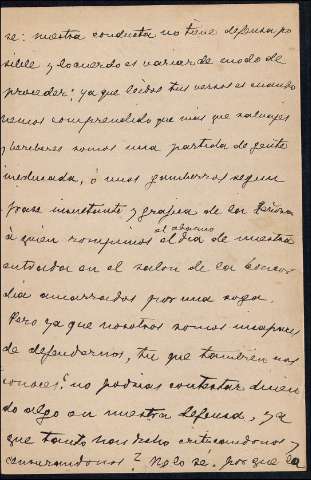 se: nuestra conducta no tiene defensa po
sible y lo cuerdo es variar de modo de
proceder: ya que leidos tus versos es cuando
hemos comprendido que mas que salvajes
y bereberes somos una partida de gente
ineducada, ó unos gamberros segun
frase insultante y grafica de la Señora
á quien rompimos el abanico el dia de nuestra
entrada en el salon de la
dia amarrados por una soga.
Pero ya que nosotros somos incapaces
de defendernos, tu que tambien nos
conoces? no podrias contestar dicien
do algo en nuestra defensa, ya
que tanto han dicho criticandonos y
censurandonos? No lo sé, por que la